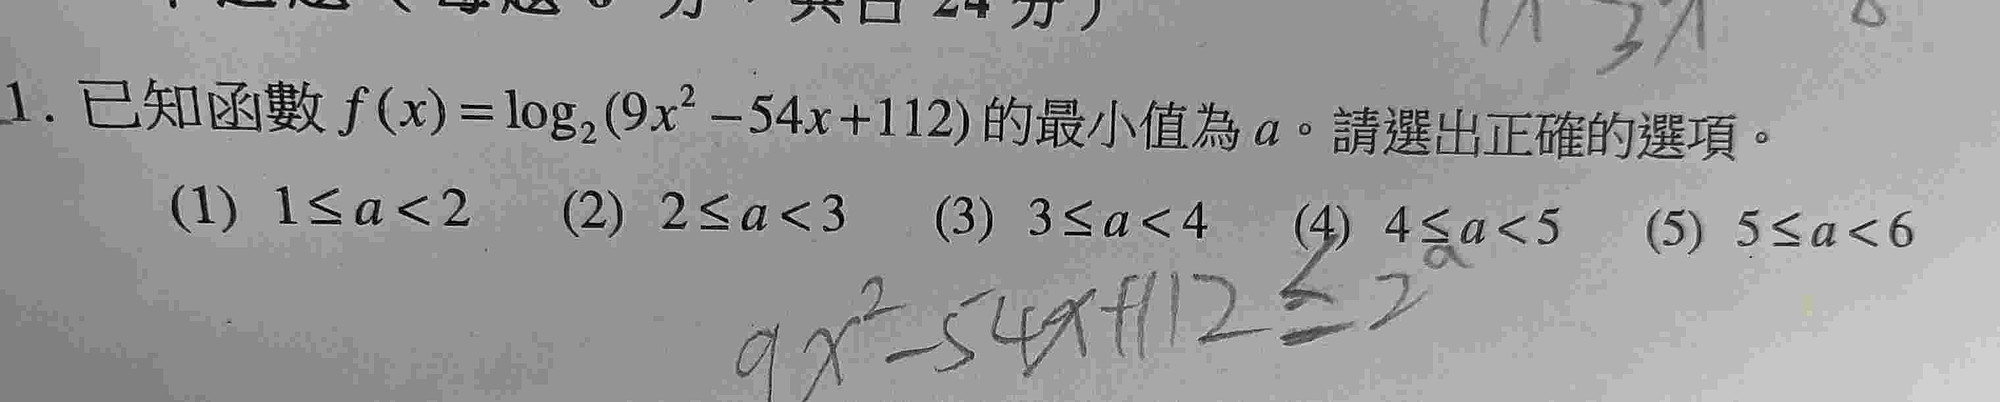 分
24 分)
1. 已知函數 f(x) = log₂(9x² − 54x + 112) 的最小值為 a。請選出正確的選項。
(1) 1 ≤ a < 2 (2) 2 ≤ a < 3 (3) 3 ≤ a < 4 (4) 4 ≤ a < 5 (5) 5 ≤ a < 6
9x² − 54x + 112 ≤ 2ᵃ